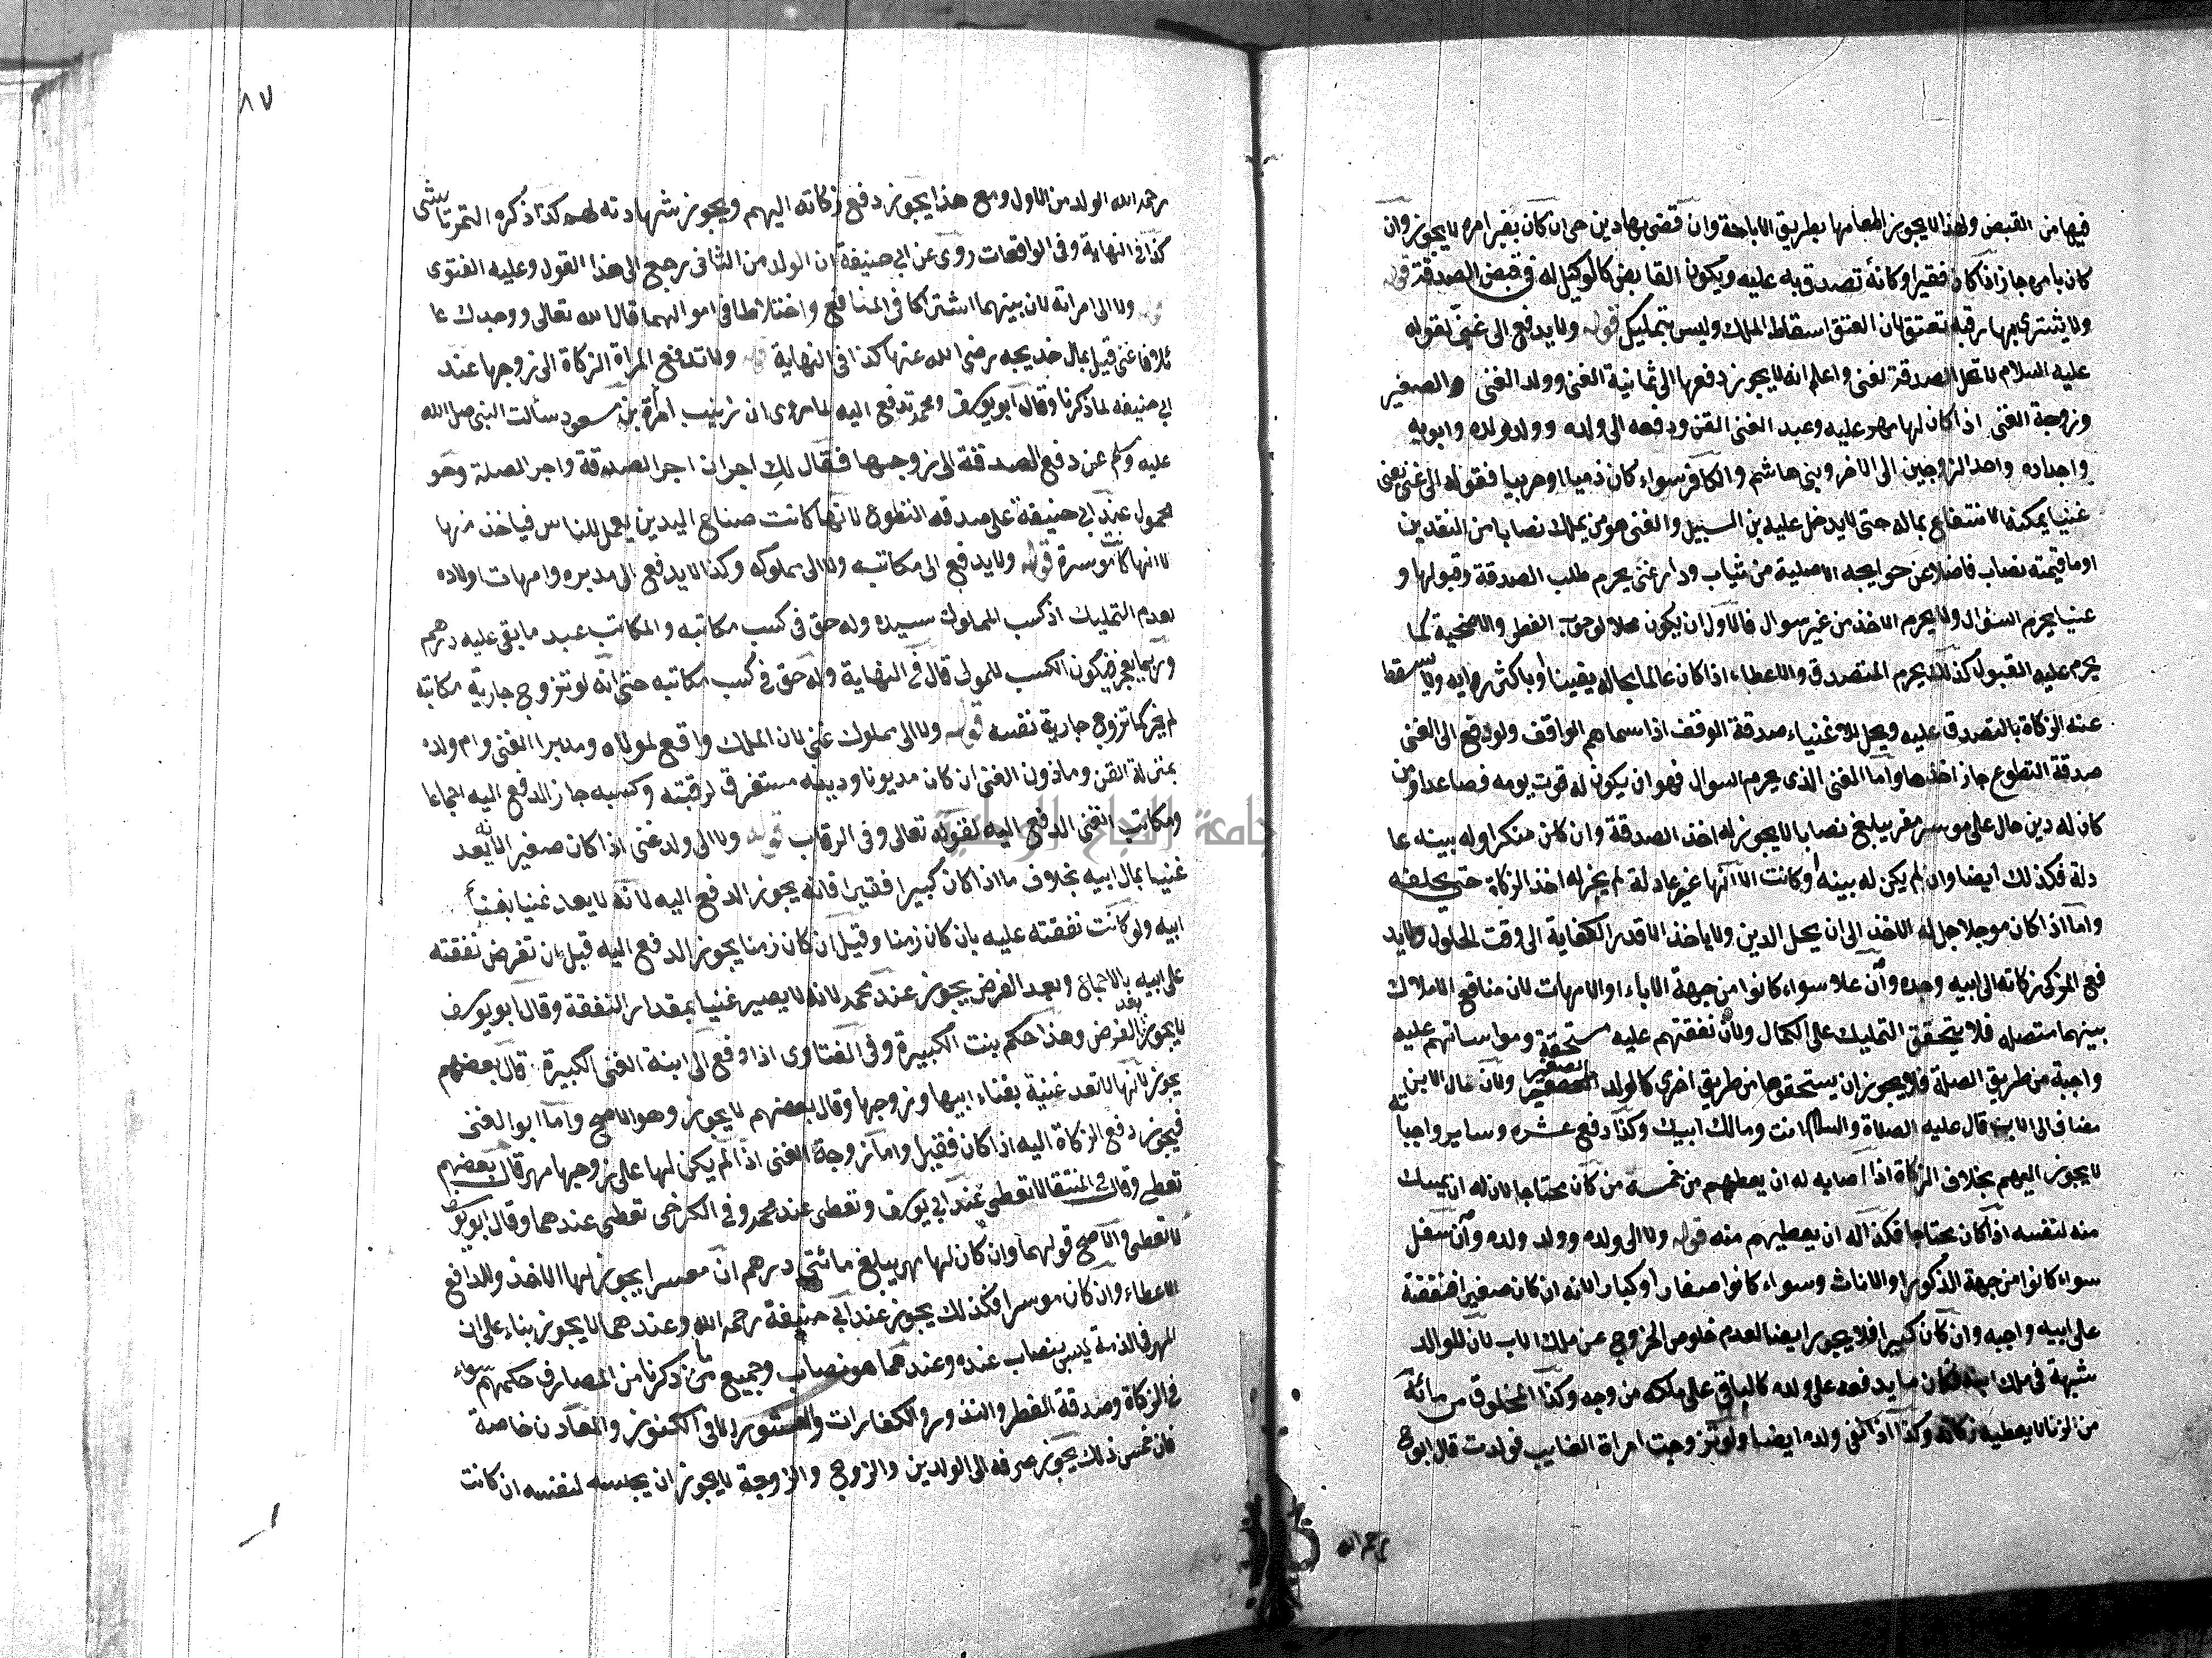 فيها من القبض ولهذا لا يجوز اطعامها بطريق الاباحة وان قضى بها دين حى ان كان بغير امره لا يجوز وان
كان بامره جاز اذا كان فقيرا وكانه تصدق به عليه ويكون القابض كالوكيل له فى قبض الصدقة قوله
ولا يشترى بها رقبة تعتق لان العتق اسقاط الملك وليس بتمليك قوله ولا يدفع الى غنى لقوله
عليه السلام لا تحل الصدقة لغنى واعلم انه لا يجوز دفعها الى ثمانية الغنى وولد الغنى الصغير
وزوجة الغنى اذا كان لها مهر عليه وعبد الغنى القن ودفعه الى ولده وولد ولده وابويه
واجداده واحد الزوجين الى الاخر وبنى هاشم والكافر سواء كان ذميا او حربيا فقوله الى غنى يعنى
غنيا يمكنه الانتفاع بماله حتى لا يدخل عليه بن السبيل والغنى هو من يملك نصابا من النقدين
او ما قيمته نصاب فاضلا عن حوايجه الاصلية من ثياب ودار غنى يحرم طلب الصدقة وقبولها و
غنيا يحرم السؤال ولا يحرم الاخذ من غير سوال فالاول ان يكون محلا لوجوب الفطر والاضحية كما
يحرم عليه القبول كذلك يحرم المتصدق والاعطاء اذا كان عالما بحاله يقينا او باكثر رايه ولا يسقط
عنه الزكاة بالتصدق عليه ويحل للاغنياء صدقة الوقف اذا سماهم الواقف ولو دفع الى الغنى
صدقة التطوع جاز اخذها واما الغنى الذى يحرم السوال فهو ان يكون له قوت يومه فصاعدا ومن
كان له دين حال على موسر مقر يبلغ نصابا لا يجوز له اخذ الصدقة وان كان منكرا وله بينه عا
دلة فكذلك ايضا وان لم يكن له بينه او كانت الا انها غير عادلة لم يجز له اخذ الزكاة حتى يحلفه
واما اذا كان موجلا جل له الاخذ الى ان يحل الدين ولا ياخذ الا قدر الكفاية الى وقت الحلول ولا يد
فع المزكى زكاته الى ابيه وجده وان علا سواء كانوا من جهة الاباء او الامهات لان منافع الاملاك
بينهما متصله فلا يتحقق التمليك على الكمال ولان نفقتهم عليه مستحقة ومواساتهم عليه
واجبة من طريق الصلة فلا يجوز ان يستحقوها من طريق اخرى كالولد الصغير ولان مال الابن
مضاف الى الاب قال عليه الصلاة والسلام انت ومالك ابيك وكذا دفع عشره وساير واجباته
لا يجوز اليهم بخلاف الركاة اذا اصابه له ان يعطيهم من خمسه من كان محتاجا لان له ان يمسك
منه لنفسه اذا كان محتاجا فكذا له ان يعطيهم منه قوله ولا الى ولده وولد ولده وان سفل
سواء كانوا من جهة الذكور او الاناث وسواء كانوا صغارا او كبارا لانه ان كان صغيرا فنفقته
على ابيه واجبه وان كان كبيرا فلا يجوز ايضا لعدم خلوص الخروج عن ملك الاب لان للوالد
شبهة فى ملك ابنه فكان ما يدفعه على ولده كالباقى على ملكه من وجه وكذا المخلوق من مائه
من الزنا لا يعطيه زكاته وكذا اذا نفى ولده ايضا ولو تزوجت امراة الغايب فولدت قال ابو ح
رحمه الله
٨٧
رحمه الله الولد من الاول ومع هذا يجوز دفع زكاته اليهم ويجوز شهادته لهم كذا ذكره التمرتاشى
كذا فى النهاية وفى الواقعات روى عن ابى حنيفة ان الولد من الثانى رجع الى هذا القول وعليه الفتوى
قوله ولا الى امراته لان بينهما اشتراكا فى المنافع واختلاطا فى اموالهما قال الله تعالى ووجدك عا
ئلا فاغنى قيل بمال خديجه رضى الله عنها كذا فى النهاية قوله ولا تدفع المراة الزكاة الى زوجها عند
ابى حنيفه لما ذكرنا وقال ابو يوسف ومحمد تدفع اليه لما روى ان زينب امراة بن مسعود سألت النبى صلى الله
عليه وسلم عن دفع الصدقة الى زوجها فقال لك اجران اجر الصدقة واجر الصلة وهو
محمول عند ابى حنيفة على صدقه التطوع لانها كانت صناع اليدين يعمل للناس فياخذ منها
لا انها كانت موسرة قوله ولا يدفع الى مكاتبه ولا الى مملوكه وكذا لا يدفع الى مدبره وامهات اولاده
بعدم التمليك اذ كسب المملوك سيده وله حق فى كسب مكاتبه والمكاتب عبد ما بقى عليه درهم
وربما يعجز فيكون الكسب للمولى قال فى النهاية وله حق فى كسب مكاتبه حتى انه لو تزوج جارية مكاتبه
لم يجز كما تزوج جارية نفسه قوله ولا الى مملوك غنى لان الملك واقع لمولاه ومدبر الغنى وام ولده
بمنزلة القن وماذون الغنى ان كان مديونا ودينه مستغرق لرقبته وكسبه جاز الدفع اليه اجماعا
ومكاتب الغنى الدفع اليه لقوله تعالى وفى الرقاب قوله ولا الى ولد غنى اذا كان صغيرا لانه يعد
غنيا بمال ابيه بخلاف ما اذا كان كبيرا فقيرا فانه يجوز الدفع اليه لانه لا يعد غنيا بغنا
ابيه ولو كانت نفقته عليه بان كان زمنا وقيل ان كان زمنا يجوز الدفع اليه قبل ان تفرض نفقته
على ابيه بالاجماع وبعد الفرض يجوز عند محمد لانه لا يصير غنيا بمقدار النفقة وقال ابو يوسف
لا يجوز بعد الفرض وهذا حكم بنت الكبيرة وفى الفتاوى اذا دفع الى ابنة الغنى الكبيرة قال بعضهم
يجوز لانها لا تعد غنية بغناء ابيها وزوجها وقال بعضهم لا يجوز وهو الاصح واما ابو الغنى
فيجوز دفع الزكاة اليه اذا كان فقيرا واما زوجة الغنى اذا لم يكن لها على زوجها مهر قال بعضهم
تعطى وقال فى المنتقا لا تعطى عند ابى يوسف وتعطى عند محمد وفى الكرخى تعطى عندهما وقال ابو يوسف
لا تعطى والاصح قولهما وان كان لها مهر يبلغ مائتى درهم ان معسرا يجوز لها الاخذ وللدافع
الاعطاء وان كان موسرا فكذلك يجوز عند ابى حنيفة رحمه الله وعندهما لا يجوز بناء على ان
المهر فى الذمة ليس بنصاب عنده وعندهما هو نصاب وجميع ما ذكرنا من المصارف حكمهم سواء
فى الزكاة وصدقة الفطر والنذور والكفارات والعشور الا فى الكنوز والمعادن خاصة
فان خمس ذلك يجوز صرفه الى الولدين والزوج والزوجة لا يجوز ان يحبسه لنفسه ان كانت
جامعة النجاح الوطنية